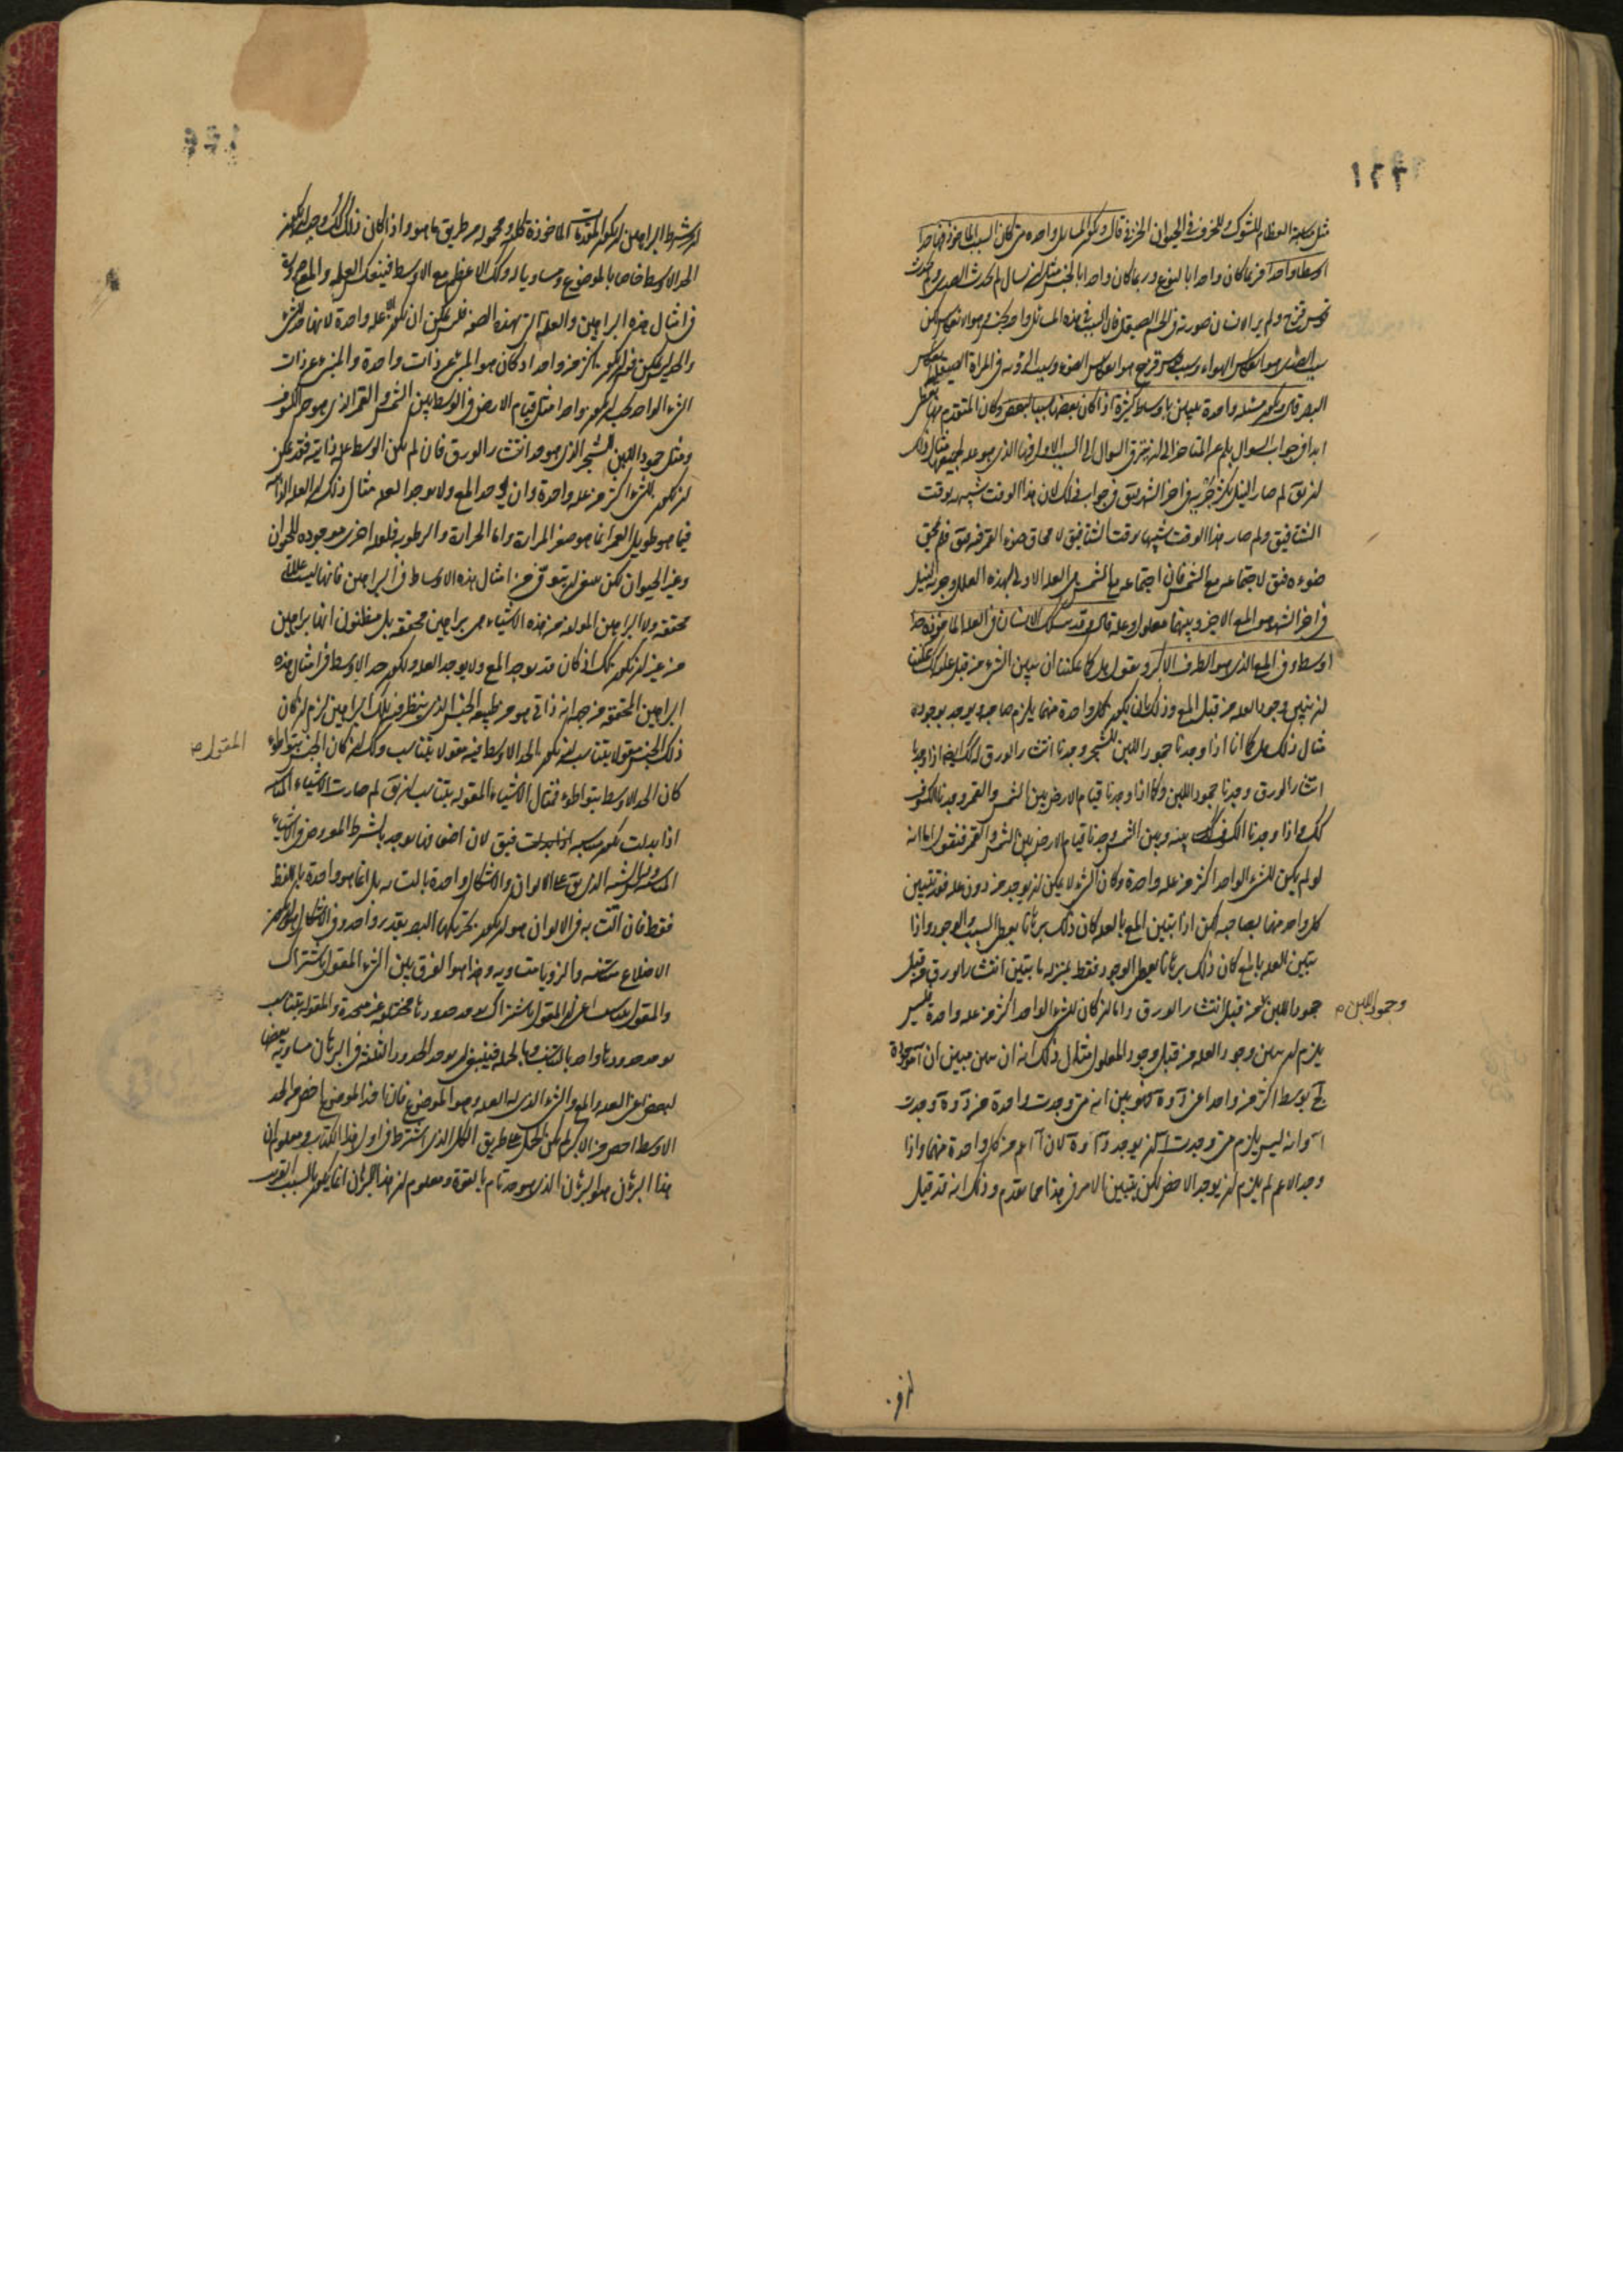 ١٢٦
مثل مناسبة العظام للشوك وللخزف في الحيوان الخزفي قال وتكون المسائل واحدة متى كان السبب المأخوذ فيها حدا
اوسطا واحدا فربما كان واحدا بالنوع وربما كان واحدا بالجنس مثل ان سال لم يحدث الصدى ولم يحدث
قوس قزح ولم يرى الانسان صورته في الجسم الصقيل فان السبب في هذه المسائل واحد بالجنس وهو الانعكاس لكن
سبب الصدى هو انعكاس الهواء وسبب قوس قزح هو انعكاس الضوء وسبب الرؤية في المرآة الصقيلة انعكاس
البصر قال وتكون مسئلة واحدة تبين باوساط كثيرة اذا كان بعضها سببا لبعض وكان المتقدم منها يعطى
ابدا في جواب السوال بلم عن المتاخر الى ان يترقى السوال الى السبب الاول فيها الذي هو علة لجميعها مثال ذلك
ان يق لم صار النيل يكثر جريه في اخر الشهر فيق في جواب ذلك لان هذا الوقت شبيه بوقت
الشتا فيق ولم صار هذا الوقت شبيها بوقت الشتا فيق لامحاق ضوء القمر فيه فيق فلم يمحق
ضوءه فيق لاجتماعه مع الشمس فان اجتماعه مع الشمس هي العلة الاولى لهذه العلل وجرية النيل
في اخر الشهر هو المع الاخير وبينهما معلول وعلة قال وقد يشك الانسان في العلة الماخوذة حدا
اوسط وفي المع الذي هو الطرف الاكبر ويقول هل كما يمكننا ان نبين الشيء من قبل علته كذلك يمكننا
ان نبين وجود العلة من قبل المع وذلك بان يكون كل واحدة منهما يلزم صاحبه ويوجد بوجوده
مثال ذلك هل كما انا اذا وجدنا جمود اللبن للشجر وجدنا انتثار الورق له كذلك ايضا اذا وجدنا
انتثار الورق وجدنا جمود اللبن وكما اذا وجدنا قيام الارض بين الشمس والقمر وجدنا الكسوف
كك واذا وجدنا الكسوف بينه وبين الشمس وجدنا قيام الارض بين الشمس والقمر فنقول اما انه
لو لم يكن للشيء الواحد اكثر من علة واحدة وكان الشيء لا يمكن ان يوجد من دون علة فقد تبين
كل واحد منهما بصاحبه لكن اذا تبين المع بالعلة كان ذلك برهانا يعطى السبب والوجود واذا
تبين العلة بالمع كان ذلك برهانا يعطى الوجود فقط بمنزلة ما يتبين انتثار الورق من قبل
جمود اللبن من قبل انتثار الورق واما ان كان للشيء الواحد اكثر من علة واحدة فليس
وجمود اللبن م
يلزم ان نبين وجود العلة من قبل وجود المعلول مثال ذلك انه ان نبين مبين ان آ موجودة
لج بوسط اكثر من واحد اعني د وة فهو بين انه متى وجدت واحدة من د وة وجدت
آ وانه ليس يلزم متى وجدت آ ان يوجد د او ة لان آ اعم من كل واحدة منهما واذا
وجد الاعم لم يلزم ان يوجد الاخص لكن يتبين الامر في هذا مما تقدم وذلك انه قد قيل
ان في شرط البراهين ان يكون المقدمات الماخوذة كلية ومحمولة من طريق ما هو واذا كان ذلك كك وجب ان يكون
الحد الاوسط خاص بالموضوع ومساويا له وكك الاعظم مع الاوسط فينعكس العلة والمع ضرورة
في امثال هذه البراهين والعلة التي بهذه الصفة فليس يمكن ان يكون الا علة واحدة لانها حد الشيء
والحد ليس يمكن فيه ان يكون اكثر من واحد اذ كان هو المنبئ عن ذات واحدة والمنبئ عن ذات
الشيء الواحد يجب ان يكون واحدا مثل قيام الارض في الوسط بين الشمس والقمر الذي هو حد الكسوف
ومثل جمود اللبن للشجر الذي هو حد انتثار الورق فان لم تكن الوسط علة ذاتية فقد يمكن
ان يكون للشيء اكثر من علة واحدة وان يوجد المع ولا يوجد العلة مثال ذلك ان العلة الذاتية
فيما هو طويل العمر انما هو صغر المرارة واما الحرارة والرطوبة فلعلة اخرى موجودة للحيوان
وغير الحيوان لكن ينبغي ان يتوقى من امثال هذه الاوساط في البراهين فانها ليست عللا
محققة ولا البراهين المولفة من هذه الاشياء هي براهين محققة بل مظنون انها براهين
من غير ان يكون كك اذ كان قد يوجد المع ولا يوجد العلة ولكون حد الاوسط في امثال هذه
البراهين المحققة من جهة انه ذاتي هو من طبيعة الجنس الذي ينظر فيه تلك البراهين لزم ان كان
ذلك الجنس مقولا بتناسب ان يكون الحد الاوسط فيه مقولا بتناسب وكك ان كان الجنس بتواطؤ
المقول ص
كان الحد الاوسط بتواطؤ فمثال الاشياء المقولة بتناسب ان يق لم صارت الاشياء المتناسبة
اذا بدلت تكون متناسبة اذا بدلت فيق لان اضعافها يوجد بالشرط المعروض في الاشياء
المتناسبة والشبه الذي يق على الالوان والاشكال واحدة بالتشابه بل انما هو واحدة باللفظ
فقط فان التشابه في الالوان هو ان يكون تحريكها البصر بقدر واحد وفي الاشكال هو ان يكون
الاضلاع متناسبة والزوايا متساوية وهذا هو الفرق بين الشيء المقول باشتراك
والمقول بتناسب اعني ان المقول باشتراك يوجد حدودها مختلفة غير متحدة والمقولة بتناسب
يوجد حدودها واحد بالتناسب وبالجملة فينبغي ان يوجد الحدود الثلثة في البرهان مساوية بعضها
لبعض اعني العلة والمع والشيء الذي له العلة وهو الموضوع فان اخذ الموضوع اخص من الحد
الاوسط اخص من الاكبر لم يكن الحمل على طريق الكل الذي اشترط في اول هذا الكتاب ومعلوم ان
هذا البرهان هو البرهان الذي هو حد تام بالقوة ومعلوم ان هذا البرهان انما يكون بالسبب القريب